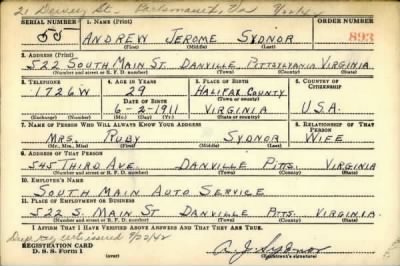 21 Dewey St. Portsmouth, Va
SERIAL NUMBER 1. NAME (Print) ORDER NUMBER
ANDREW JEROME SYDNOR 893
(First) (Middle) (Last)
2. ADDRESS (Print)
522 SOUTH MAIN ST. DANVILLE, PITTSYLVANIA VIRGINIA
(Number and street or R. F. D. number) (Town) (County) (State)
3. TELEPHONE 4. AGE IN YEARS 5. PLACE OF BIRTH 6. COUNTRY OF CITIZENSHIP
1726W 29 HALIFAX COUNTY
DATE OF BIRTH (Town or county)
6-2-1911 VIRGINIA U.S.A.
(Exchange) (Number) (Mo.) (Day) (Yr.) (State or country)
7. NAME OF PERSON WHO WILL ALWAYS KNOW YOUR ADDRESS 8. RELATIONSHIP OF THAT PERSON
MRS. RUBY SYDNOR WIFE
(Mr., Mrs., Miss) (First) (Middle) (Last)
9. ADDRESS OF THAT PERSON
545 THIRD AVE. DANVILLE PITTS. VIRGINIA
(Number and street or R. F. D. number) (Town) (County) (State)
10. EMPLOYER'S NAME
SOUTH MAIN AUTO SERVICE
11. PLACE OF EMPLOYMENT OR BUSINESS
522 S. MAIN ST DANVILLE PITTS. VIRGINIA.
(Number and street or R. F. D. number) (Town) (County) (State)
I AFFIRM THAT I HAVE VERIFIED ABOVE ANSWERS AND THAT THEY ARE TRUE.
issued 9/22/42
REGISTRATION CARD
D. S. S. Form 1 (over) A. J. Sydnor
(Registrant's signature)